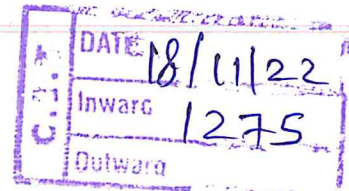 DATE 18/11/22
Inward 1275
Outward